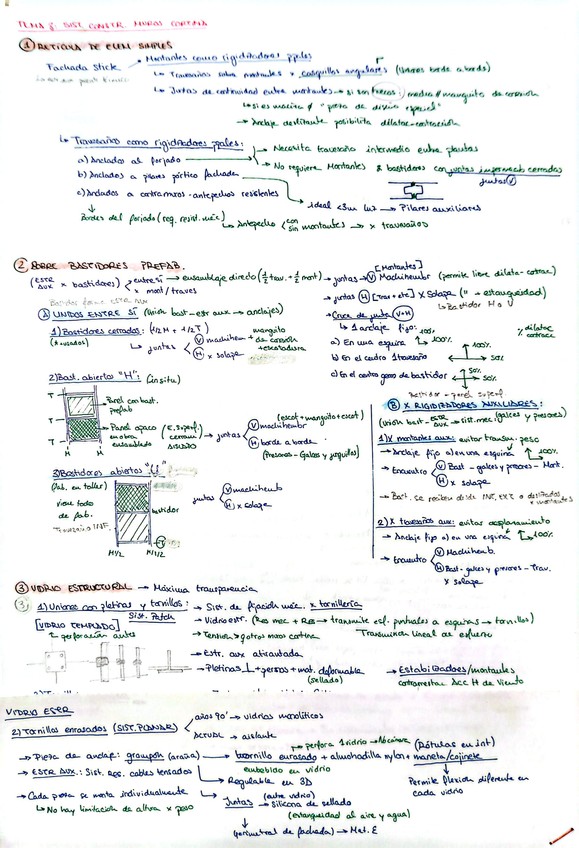 TEMA 8: SIST. CONSTR. MUROS CORTINA
① RETÍCULA DE ELEM. SIMPLES
Fachada Stick
Montantes como rigidizadores ppales
↳ Travesaños sobre montantes x casquillos angulares (Uniones borde a borde)
↳ Juntas de continuidad entre montantes → si son huecos: mediante manguito de conexión
↳ si es maciza "pieza de diseño especial"
↳ Anclaje deslizante posibilita dilatac-contracción
↳ Travesaños como rigidizadores ppales:
a) Anclados al forjado
b) Anclados a pilares pórtico fachada
c) Anclados a contramuros-antepechos resistentes
→ Necesita travesaño intermedio entre plantas
→ No requiere Montantes & bastidores con juntas cerradas
juntas Ⓥ
ideal <3m luz → Pilares auxiliares
Bordes del forjado (req. resist. méc)
↳ Antepecho con sin montantes → x travesaños
② SOBRE BASTIDORES PREFAB.
(ESTR AUX x bastidores)
entre sí → ensamblaje directo (½ trav. + ½ mont)
x mont/traves
[Montantes]
→ juntas Ⓥ Machihemb (permite libre dilatac-contrac)
juntas Ⓗ [trav + etc] x Solape (" → estanqueidad)
↳ Bastidor H o V
→ Cruce de junta (V+H)
↳ 1 anclaje fijo: 100%
a) En una esquina 100%
b) En el centro 1 travesaño 100% 50%
c) En el centro geom de bastidor 50% 50%
% dilatac contracc
Ⓐ UNIDOS ENTRE SÍ (Unión bast-estr aux → anclajes)
1) Bastidores cerrados: (½H + ½T)
(+ usados)
↳ juntas Ⓥ machihem + manguito de conexión + escotadura
Ⓗ x solape
2) Bast. abiertos "H": (in situ)
Panel con bast. prefab
Panel opaco
T
T
T
H
H
→ juntas Ⓥ machihemb (escot+manguito+escot)
Ⓗ borde a borde
(Presores - Galces y junquillos)
3) Bastidores abiertos "U"
(fab. en taller)
viene todo de fab.
Travesaño INF.
bastidor
M/2
juntas Ⓥ machihemb
Ⓗ x solape
Ⓑ X RIGIDIZADORES AUXILIARES:
(Unión bast-ESTR AUX → sist. mec. (galces y presores)
1) X montantes aux: evitar transm. peso
- Anclaje fijo a) en una esquina 100%
- Encuentro Ⓥ Bast - galces y presores - Mont.
Ⓗ x solape
- Bast. se reciben desde INT, EXT o deslizados x montantes
2) x travesaños aux: evitar acoplamiento
- Anclaje fijo a) en una esquina 100%
- Encuentro Ⓥ Machihemb
Ⓗ Bast-galces y presores - Trav.
x solape
③ VIDRIO ESTRUCTURAL → Máxima transparencia
1) Uniones con pletinas y tornillos:
Sist. Patch
[VIDRIO TEMPLADO]
↳ perforación antes
→ Sist. de fijación méc. x tornillería
→ Vidrio estr. → transmite esf. puntuales a esquinas → tornillos)
→ Tensión > q otros muro cortina
Transmisión lineal de esfuerzo
→ Estr. aux atirantada
→ Pletinas ⊥ + pernos + mat. deformable
(sellado)
→ Estabilizadores/montantes
contrarrestar Acc H de Viento
VIDRIO ESTR
2) Tornillos enrasados (SIST. PLANAR)
años 90' → vidrios monolíticos
Actual → aislante
- Pieza de anclaje: grampón (araña) → tornillo enrasado + almohadilla nylon + maneta/cojinete
perfora 1 vidrio
(Rótulas en int)
embebido en vidrio
Permite flexión diferente en cada vidrio
- ESTR AUX.: Sist. Reg. cables tensados
→ Regulable en 3D
- Cada pieza se monta individualmente
↳ No hay limitación de altura x peso
(entre vidrio)
Juntas → Silicona de sellado
(estanquidad al aire y agua)
(perimetral de fachada) → Met. E